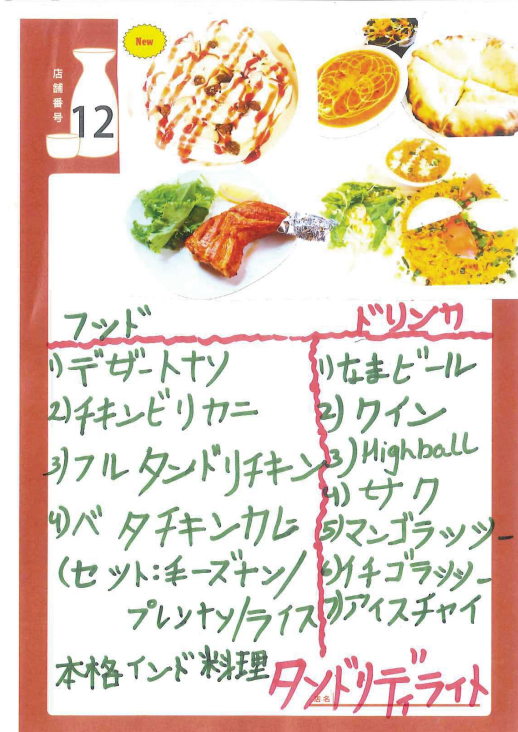 New
店舗番号
12
フッド
1) デザートナン
2) チキンビリカニ
3) フルタンドリチキン
4) バタチキンカレ
(セット:チーズナン/
プレンナン/ライス
ドリンカ
1) なまビール
2) ワイン
3) Highball
4) サク
5) マンゴラッシー
6) イチゴラッシー
7) アイスチャイ
本格インド料理
店名
タンドリディライト